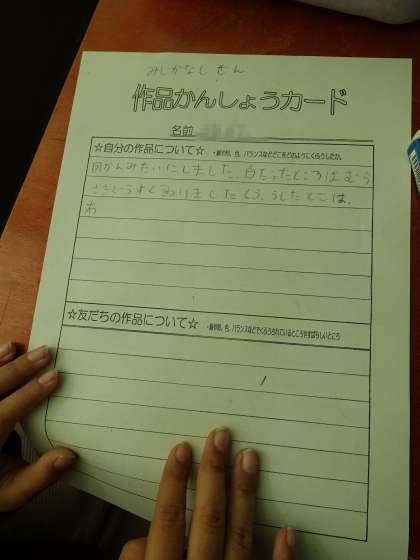 みじかなしぜん
作品かんしょうカード
名前
☆自分の作品について☆ ・細かい所、色、バランスなどどこをどのようにくふうしたか。
図かんみたいにしました。白だったところはむら
さきとうすくぬりましたくふうしたところは、
わ
☆友だちの作品について☆ ・細かい所、色、バランスなどでくふうされているところやすばらしいところ